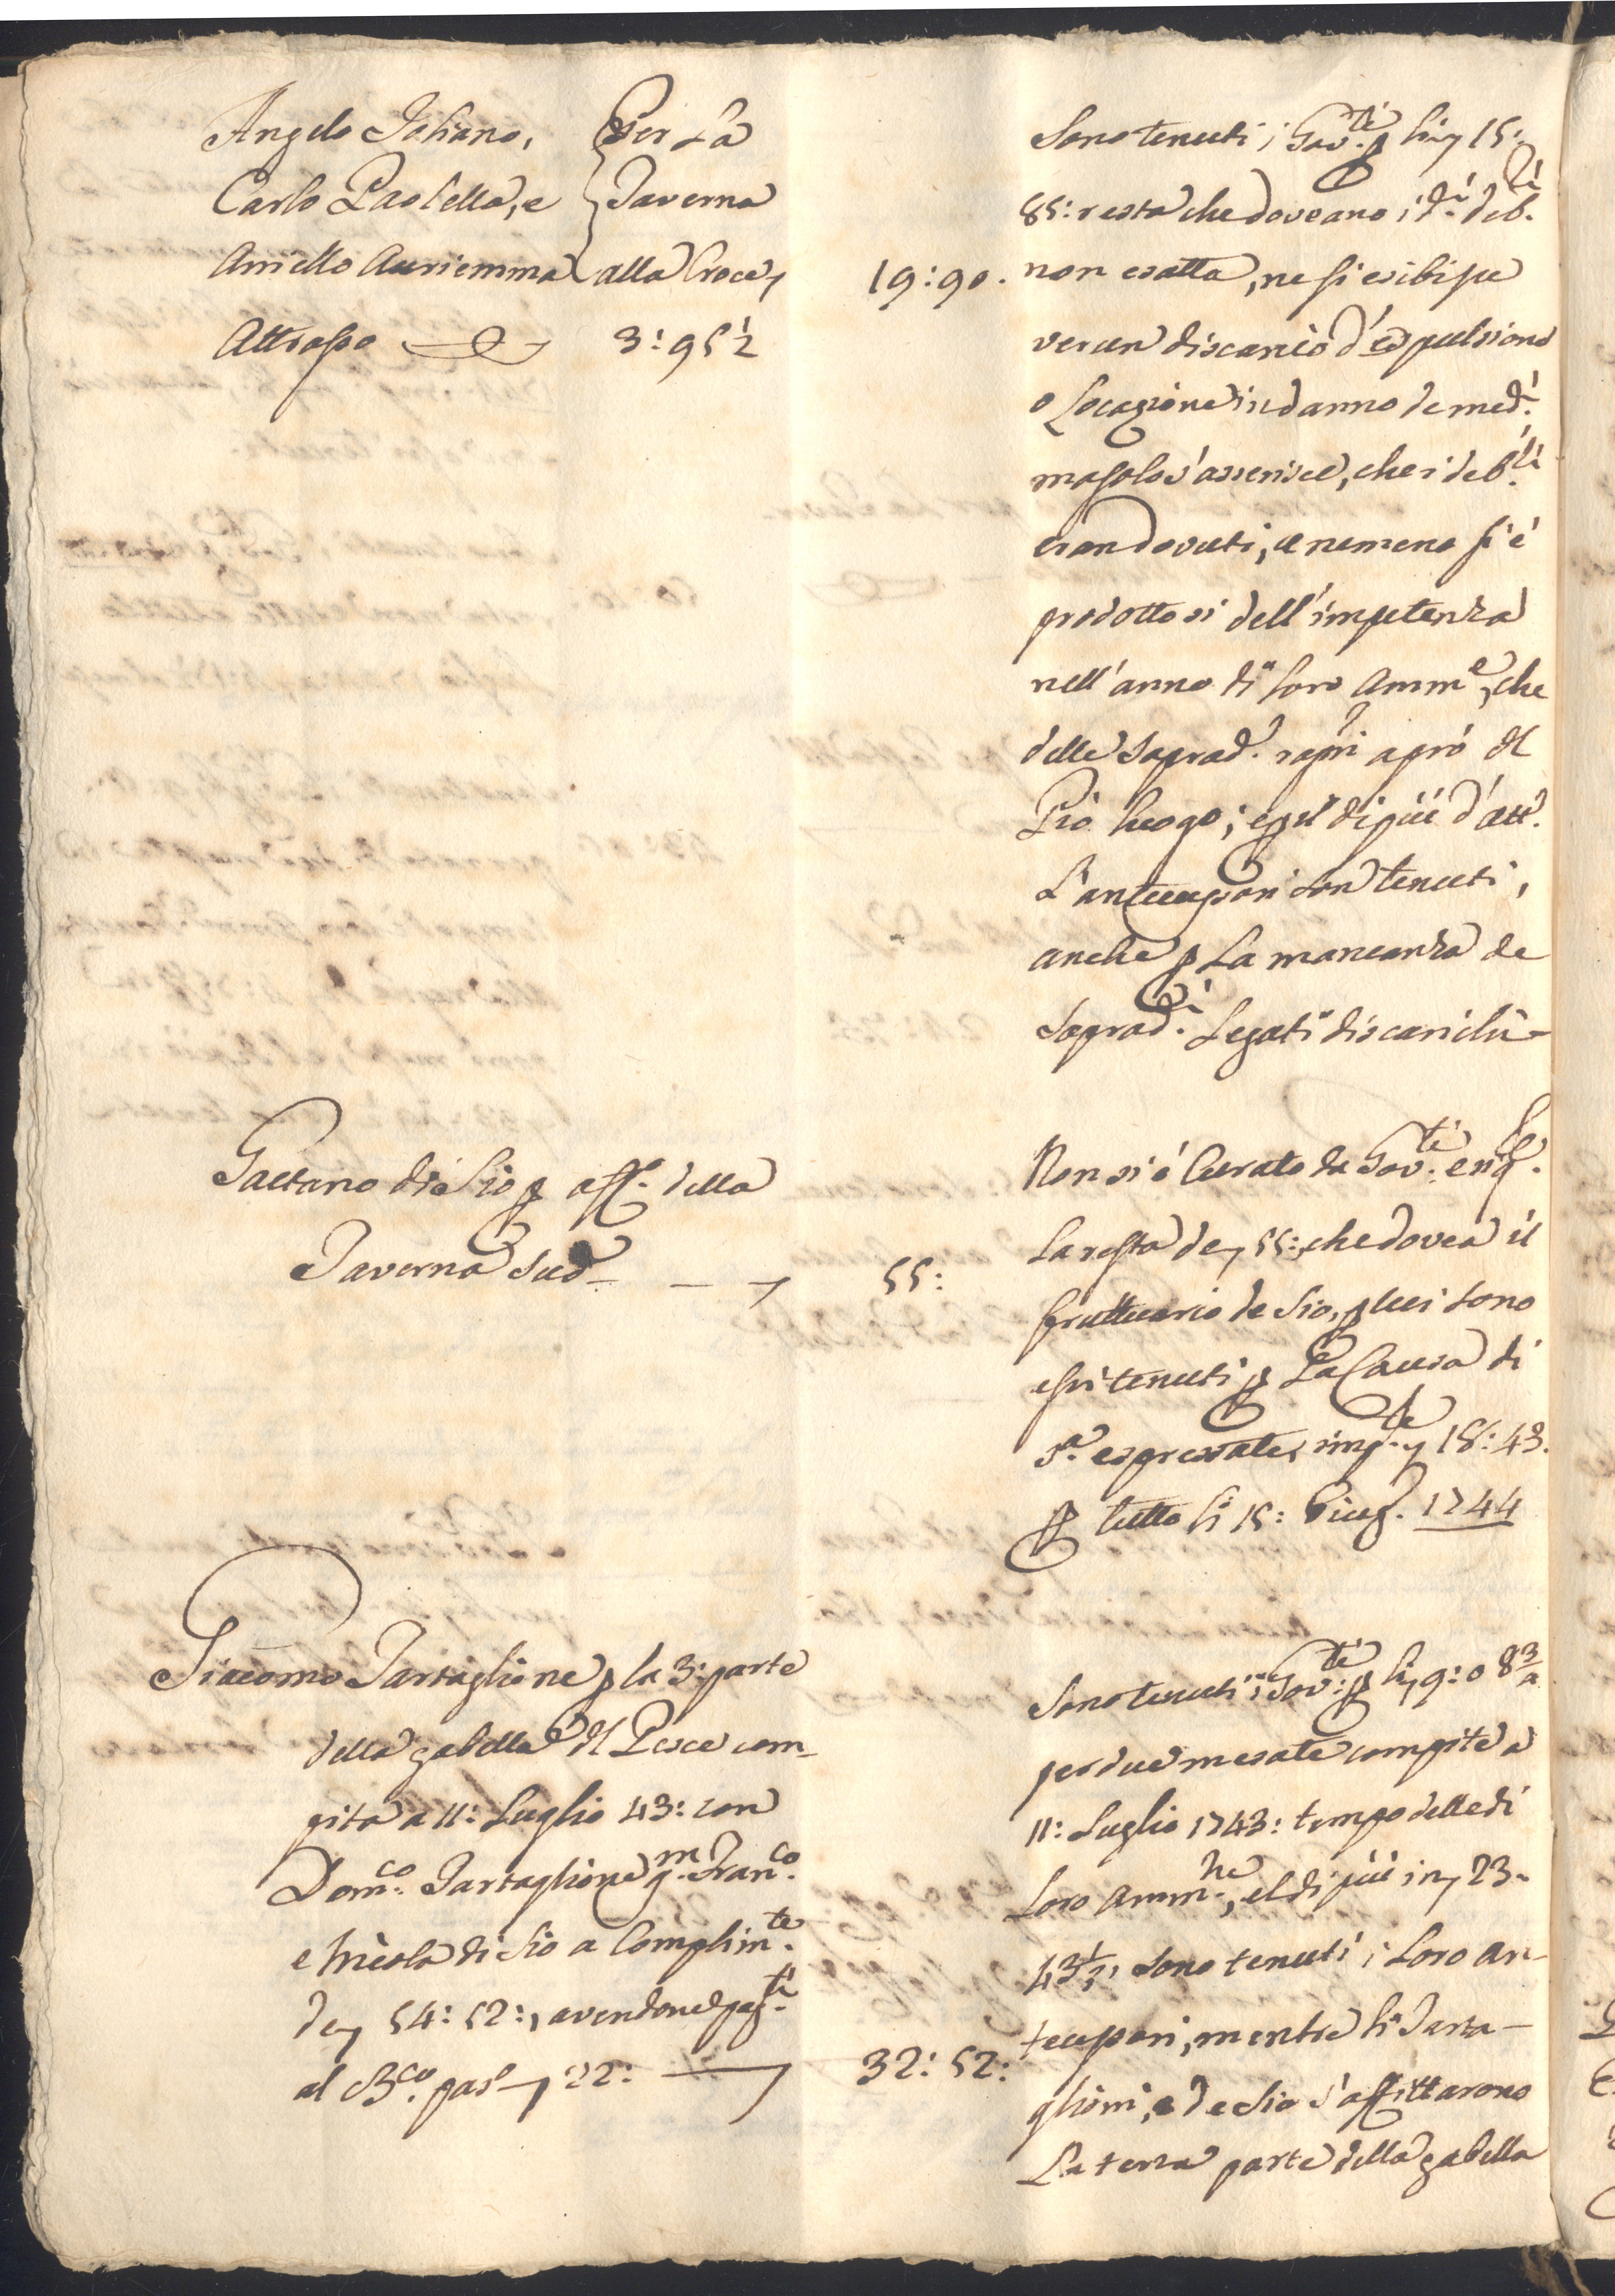 Angelo Istiano, Per La
Carlo Paolella, e Taverna
Aniello Auriemma alla Croce,
Attrasso 3:95½
19:90.
Sono tenuti i Gov.ti p li 15:
85: resta che doveano i d.i deb.ti
non esatta, ne si esibisce
verun discarico d'espulsione
o Locazione in danno de med.i
ma solo s'asserisce, che i deb.ti
eran dovuti, e nemeno si è
prodottosi dell'impotenza
nell'anno di loro Amm.e, che
delle soprad.
Pio luogo; e p il di più d'att.
L'antecessori son tenuti,
anche p La mancanza de
soprad.i Legati discarichi
Gaetano di Sio p aff.o della
Taverna sud.a
55:
Non si è Curato da Gov.ti
La resta de 55: che dovea il
fruttuario de Sio, p cui sono
essi tenuti p La Causa di
s.a espressate, imp.te 18:43.
p tutto li 15: Giug. 1744
Giacomo Tartaglione p la 3: parte
della gabella del Pesce com-
pita a 11: Luglio 43: con
Dom.co Tartaglione q.m Fran.co
e Nicola di Sio a Complim.te
de 54:52:, avendone pag.ti
al B.co pas. 22:
32:52:
Sono tenuti i Gov.ti p li 9:0 8¾
per due mesate compite a
11: Luglio 1743: tempo delle di
Loro Amm.ne, el di più in 23-
43½, sono tenuti i Loro an-
tecessori, mentre li Tarta-
glioni, e de Sio s'affittarono
La terza parte della gabella